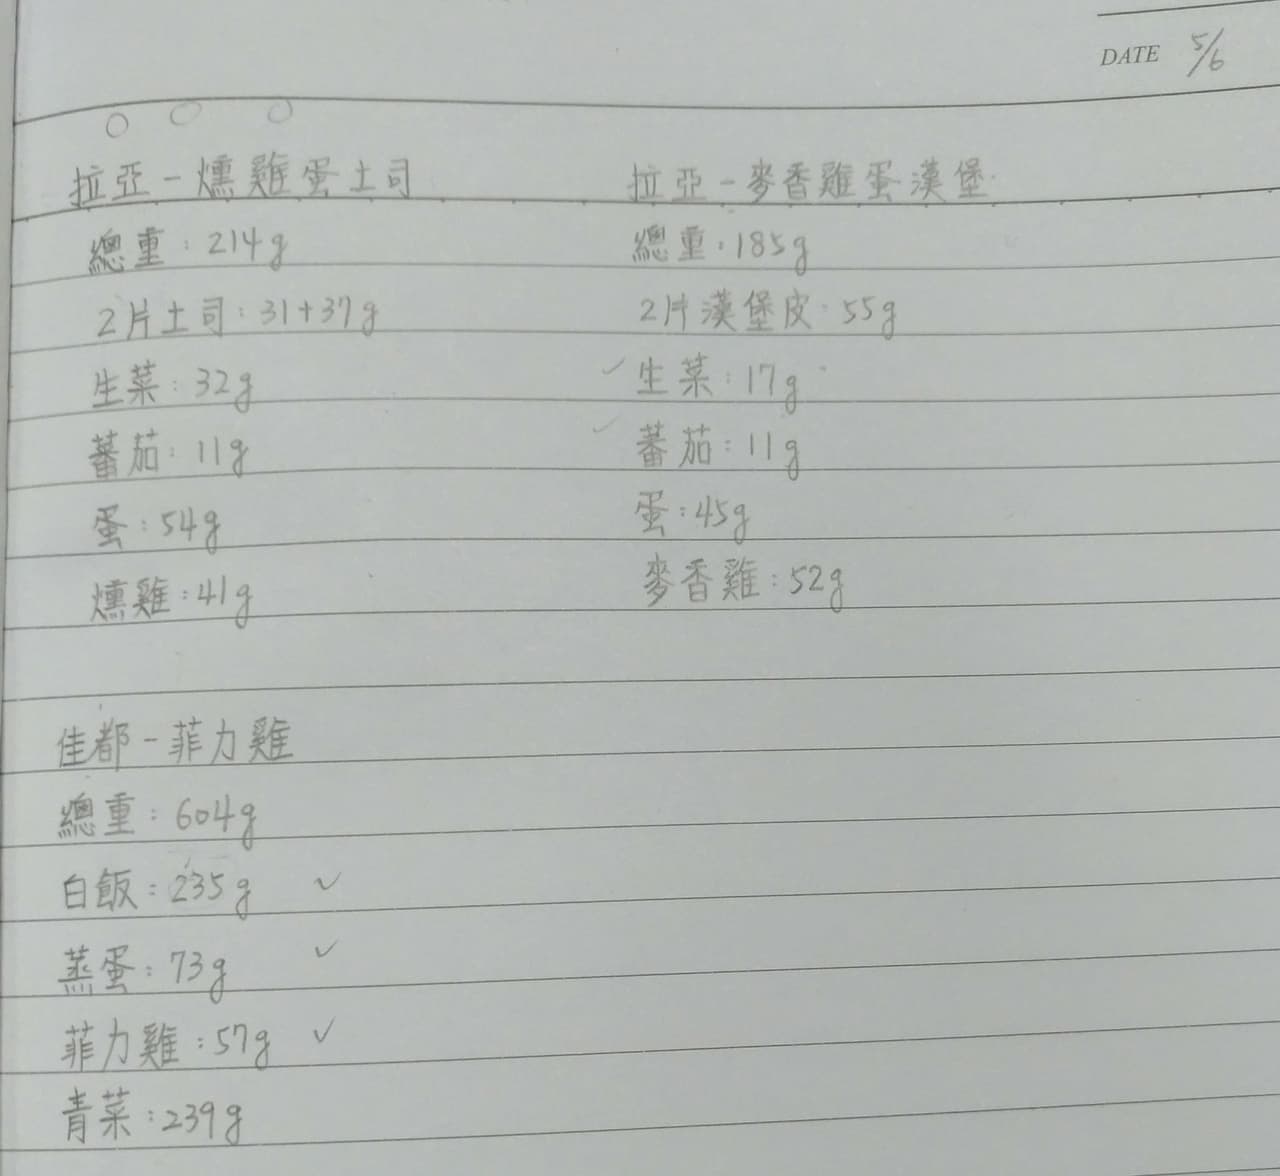 DATE 5/6
拉亞-燻雞蛋土司
總重:214g
2片土司:31+37g
生菜:32g
蕃茄:11g
蛋:54g
燻雞:41g
拉亞-麥香雞蛋漢堡
總重:185g
2片漢堡皮:55g
✓生菜:17g
✓蕃茄:11g
蛋:45g
麥香雞:52g
佳都-菲力雞
總重:604g
白飯:235g ✓
蒸蛋:73g ✓
菲力雞:57g ✓
青菜:239g